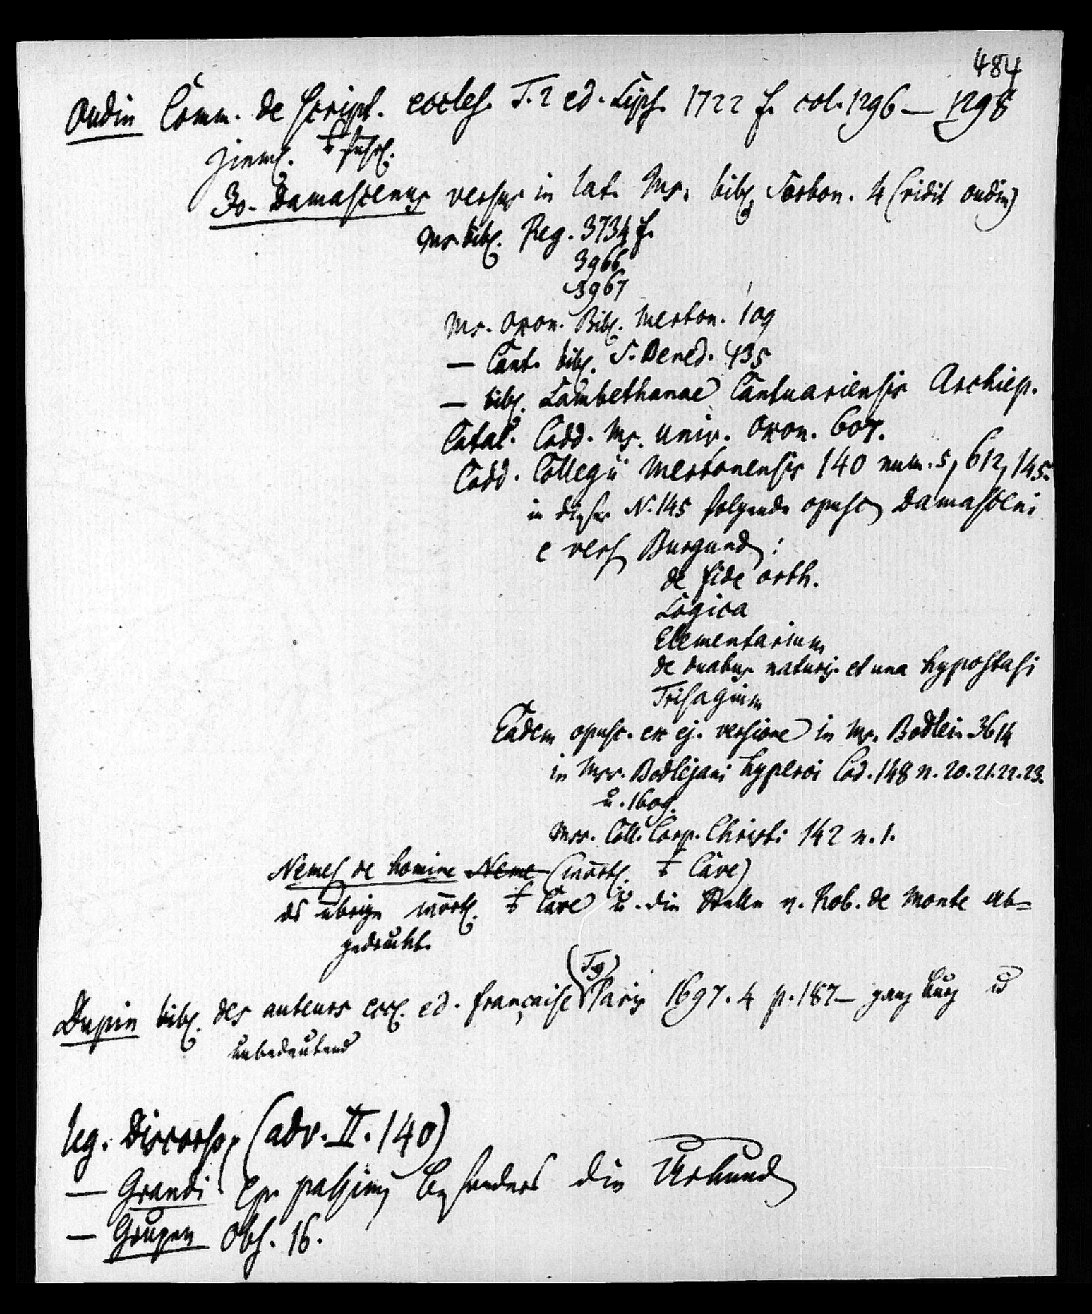 484
Oudin Comm. de script. eccles. T. 2 ed. Lips. 1722 f. col. 1296 — 1298
Jo. Damascenus versus in lat. Ms. bibl. Sorbon. 4 (vidit oudin)
Ms. bibl. Reg. 3734 f.
3966
3967
Ms. Oxon. Bibl. Merton. 109
— Cant. bibl. S. Bened. 435
— bibl. Lambethanae Cantuariensis Archiep.
Catal. Codd. Ms. univ. Oxon. 607.
Codd. Collegii Mertonensis 140 num. 5, 612, 145.
in dieser N. 145 folgende opusc. Damasceni
e vers. Burgund.:
de fide orth.
Logica
Elementarium
de duabus naturis et una hypostasi
Trisagium
Eadem opusc. ex ej. versione in Ms. Bodlei. 3614
in Mss. Bodlejani Hyperoi Cod. 148 n. 20. 21. 22. 23.
u. 1609.
Mss. Coll. Corp. Christi 142 n. 1.
Nemes. de homine Neme (wörtl. Cave)
das übrige wörtl. Cave u. die Stelle v. Rob. de Monte ab=
gedruckt.
(T. 9)
Dupin bibl. des auteurs eccl. ed. française Paris 1697. 4 p. 187— ganz kurz u
unbedeutend
leg. Discorso, (adv. II. 140)
— Grandi Ep. passim, besonders die Urkund
— Grupen Obs. 16.